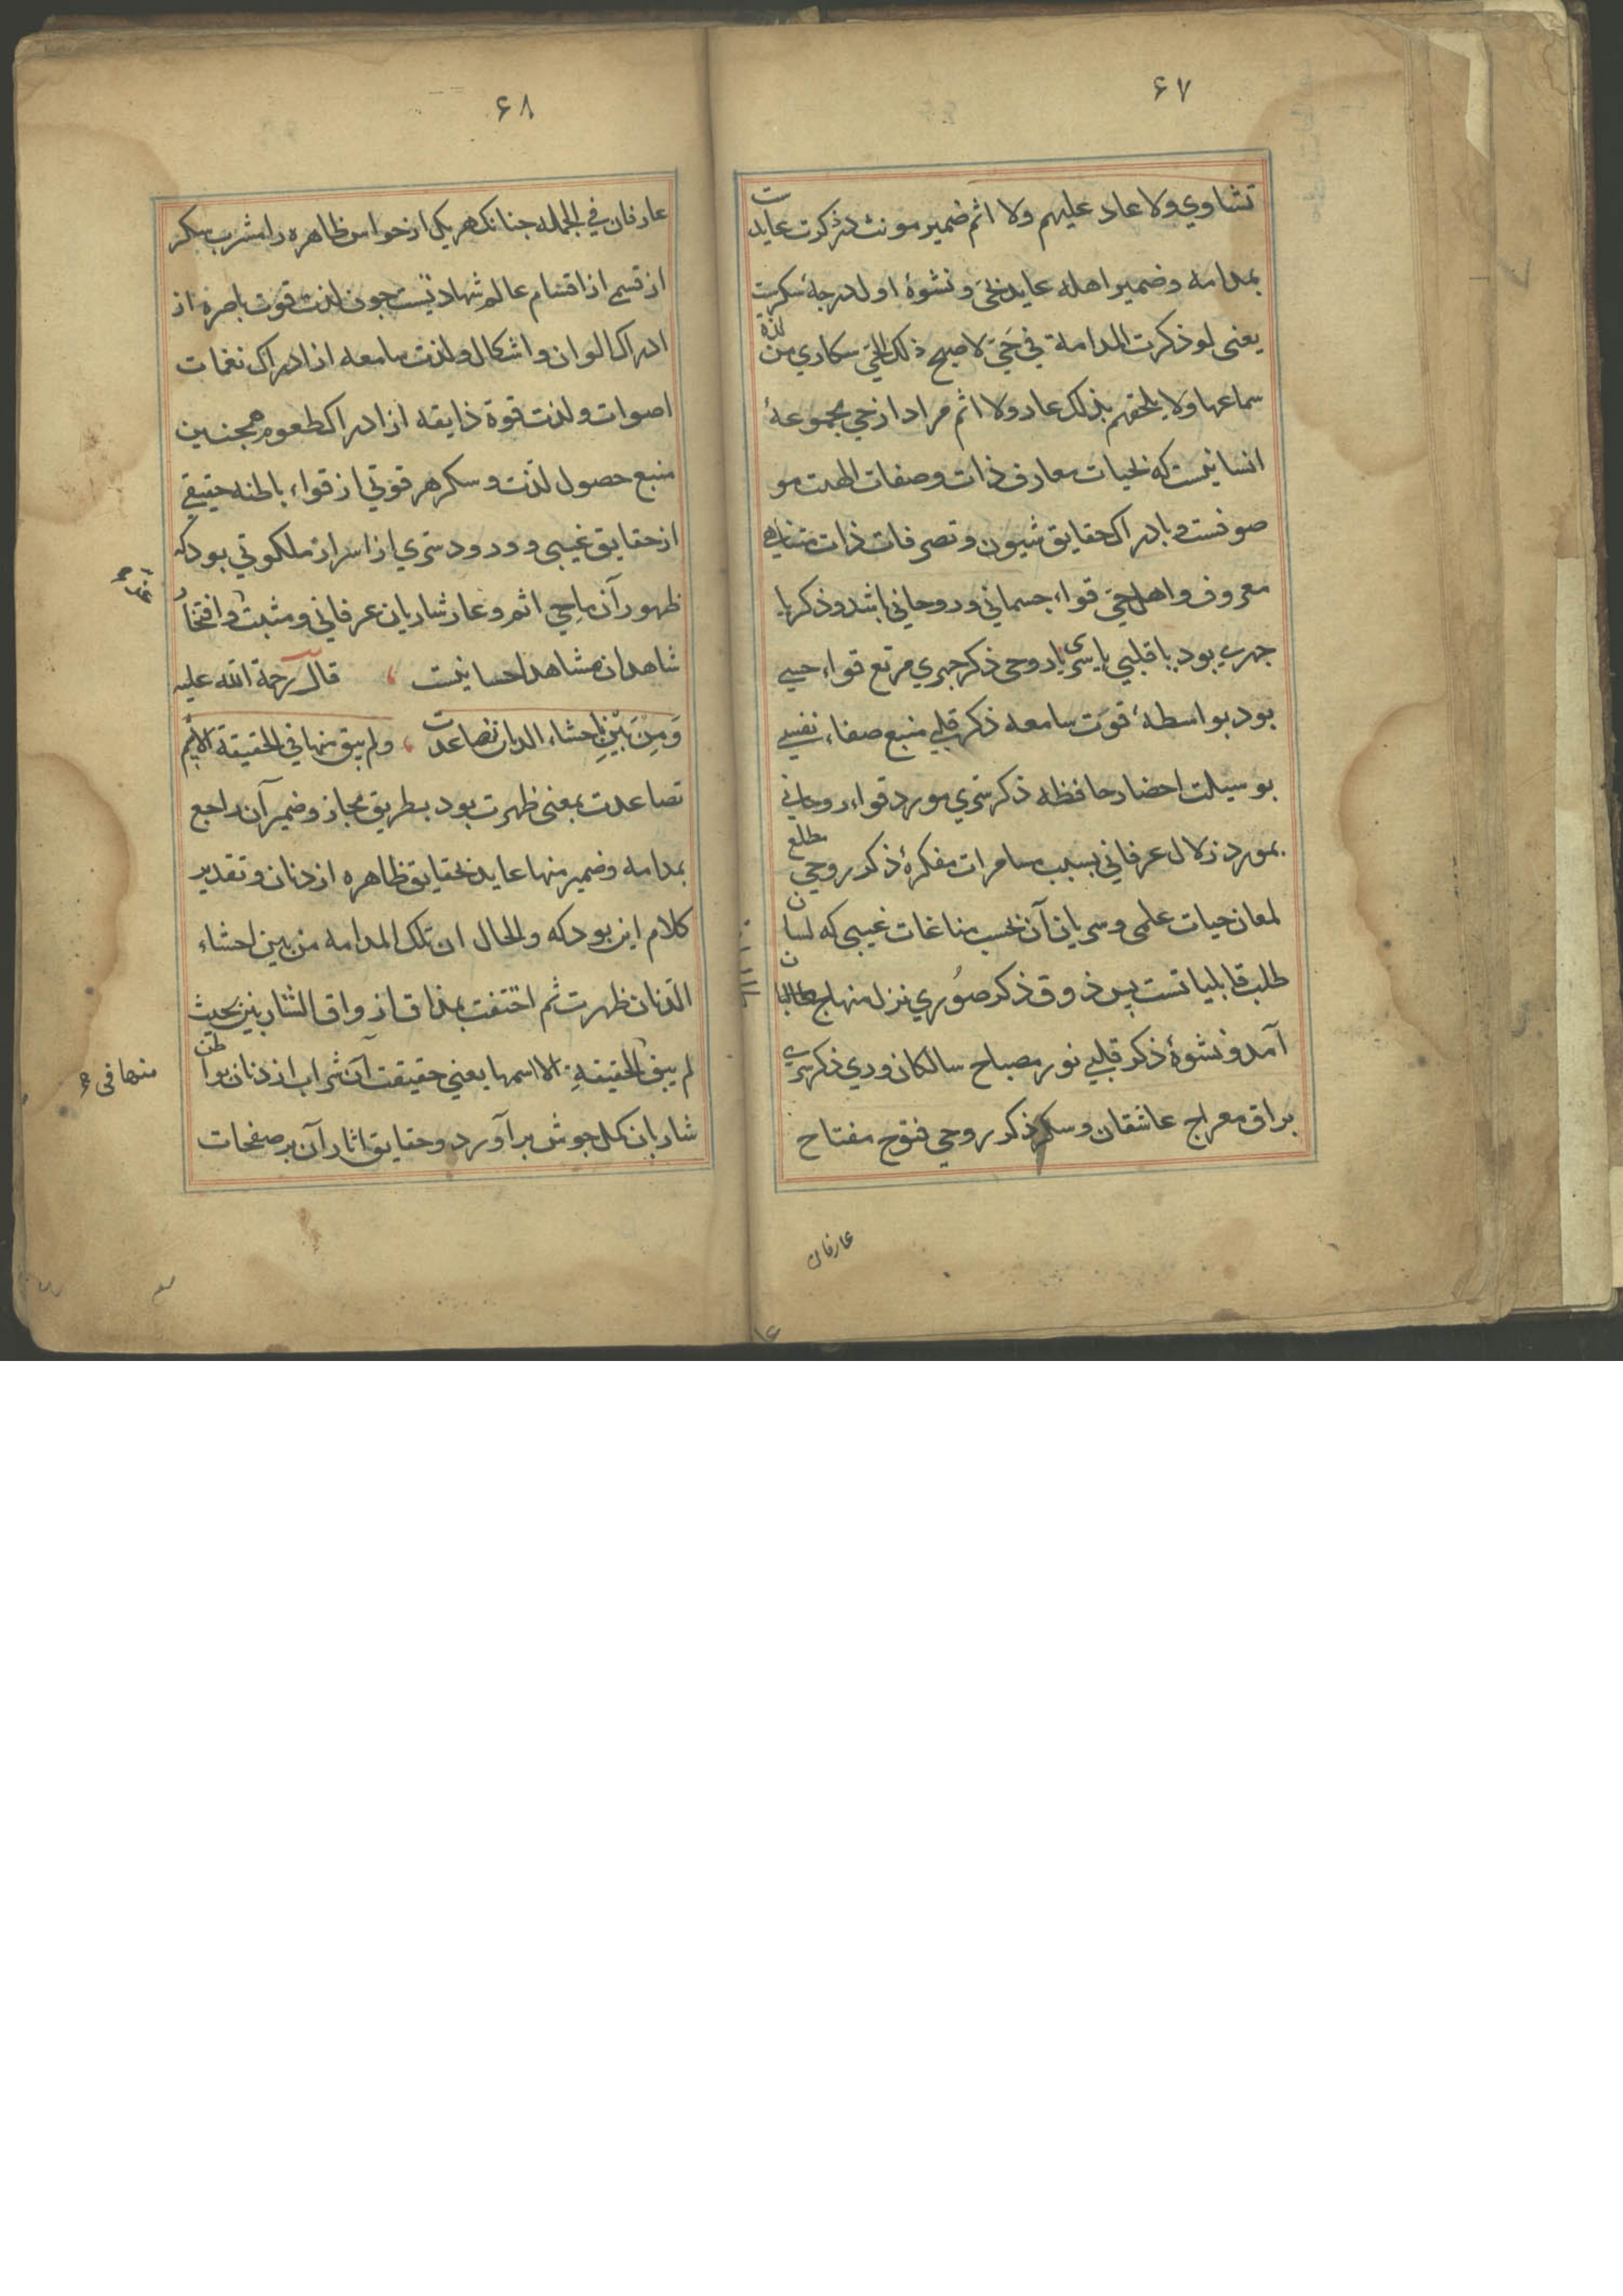 ۶۷
نشاوي ولا عار عليهم ولا اثم ضمير مونث در ذكرت عايدست
بمدامه وضمير اهله عايد بحي ونشوهٔ اول درجهٔ سكرست
يعنى لو ذكرت المدامة في حَيّ لاصبح ذلك الحَيّ سكاري من لذة
سماعها ولا يلحقهم بذلك عار ولا اثم مراد از حي مجموعهٔ
انسانيست كه بحيات معارف ذات وصفات الهيت مو
صوفست وبادراك حقايق شيون وتصرفات ذات متناهي
معروف واهل حَيّ قواء جسماني وروحاني باشد وذكر يا
جهري بود يا قلبي يا سري يا روحى ذكر جهري مرتع قواء حسي
بود بواسطهٔ قوت سامعه ذكر قلبي منبع صفاء نفسي
بوسيلت احضار حافظه ذكر سري مورد قواء روحاني
بمورد زلال عرفاني بسبب مسامرات مفكرهٔ ذكر روحي مطلع
لمعان حيات علمى وسريان آن بحسب مناغات غيبى كه لسان
طلب قابلياتست پس ذوق ذكر صُوري نزل منهاج طالبان
آمد ونشوهٔ ذكر قلبي نور مصباح سالكان وري ذكر سري
براق معراج عاشقان وسكر ذكر روحي فتوح مفتاح
عارفان
۶۸
عارفان في الجمله جنانك هر يكى از حواس ظاهره را مشرب سكر
از قسمي از اقسام عالم شهادتيست جون لذت قوت باصره از
ادراك الوان واشكال ولذت سامعه از ادراك نغمات
اصوات ولذت قوة ذايقه از ادراك طعوم همجنين
منبع حصول لذت وسكر هر قوتي از قواء باطنه حقيقي
از حقايق غيبى وورود سري از اسرار ملكوتي بود كه
ظهور آن ماحي اثم وعار شاربان عرفاني ومثبت وافتخار
شاهدان مشاهد احسانيست ، قال رحمة الله عليه
وَمِن بَيْنِ احشاء الدنان تصاعدت ، ولم يبق منها في الحقيقة الا اسم
تصاعدت بمعنى ظهرت بود بطريق مجاز وضمير آن راجع
بمدامه وضمير منها عايد بحقايق ظاهره از دنان وتقدير
كلام اين بود كه والحال ان تلك المدامه من بين احشاء
الدنان ظهرت ثم اختفت بمذاق اذواق الشاربين بحيث
لم يبق الحقيقةِ الا اسمها يعني حقيقت آن شراب از دنان بواطن
منها فى
شاربان كل جوش برآورد وحقايق اثار آن بر صفحات